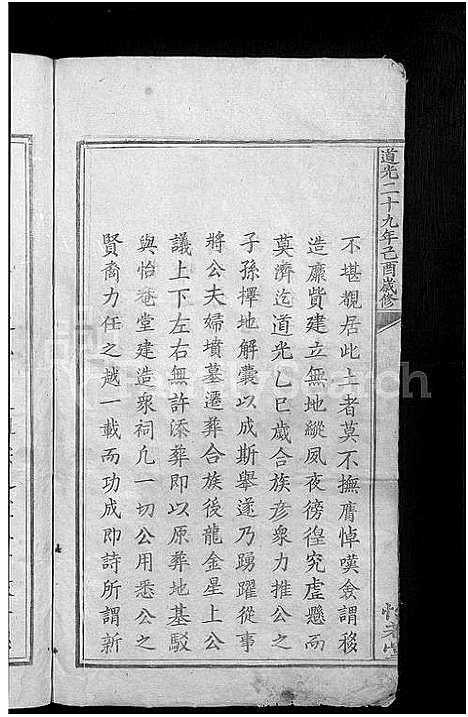 道光二十九年己酉歲修
不堪觀居此土者莫不撫膺悼嘆僉謂移
造靡貲建立無地縱夙夜徬徨究虛懸而
莫濟迄道光乙巳歲合族彦衆力推公之
子孫擇地解囊以成斯舉遂乃踴躍從事
將公夫婦墳墓遷葬合族後龍金星上公
議上下左右無許添葬即以原葬地基馭
與怡菴堂建造衆祠凢一切公用悉公之
賢裔力任之越一載而功成即詩所謂新